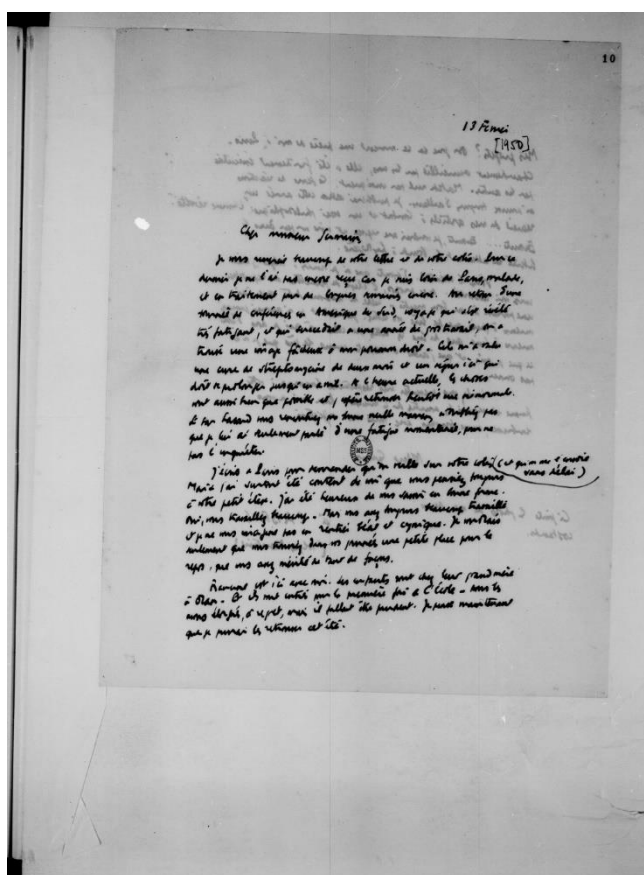 10
13 Février
[1950]
Cher Monsieur Germain
Je vous remercie beaucoup de votre lettre et de votre colis. Mais ce
dernier je ne l'ai pas encore reçu car je suis loin de Paris, malade,
et en traitement pour de longues semaines encore. Au retour d'une
tournée de conférences en Amérique du Sud, voyage qui s'est révélé
très fatigant, et qui succédait à une année de gros travail, on a
trouvé une image fâcheuse à mon poumon droit. Cela m'a valu
une cure de streptomycine de deux mois et un repos ici qui
doit se prolonger jusqu'en avril. A l'heure actuelle, les choses
vont aussi bien que possible et j'espère retrouver bientôt une vie normale.
Si par hasard vous rencontrez ma bonne vieille maman, n'oubliez pas
que je lui ai seulement parlé d'une fatigue momentanée, pour ne
pas l'inquiéter.
J'écris à Paris pour demander qu'on veille sur votre colis (et qu'on me l'envoie
sans délai)
Mais j'ai surtout été content de voir que vous pensiez toujours
à votre petit élève. J'ai été heureux de vous savoir en bonne forme.
Oui, vous travaillez beaucoup. Mais vous avez toujours beaucoup travaillé
et je ne vous imagine pas en rentier béat et cynique. Je voudrais
seulement que vous trouviez dans vos journées une petite place pour le
repos, que vous avez mérité de tant de façons.
Francine est ici avec moi. Les enfants sont chez leur grand'mère
à Oran. Et ils ont entré pour la première fois à l'école. Nous les
avons éloignés, à regret, mais il fallait être prudent. Je pense maintenant
que je pourrai les retrouver cet été.